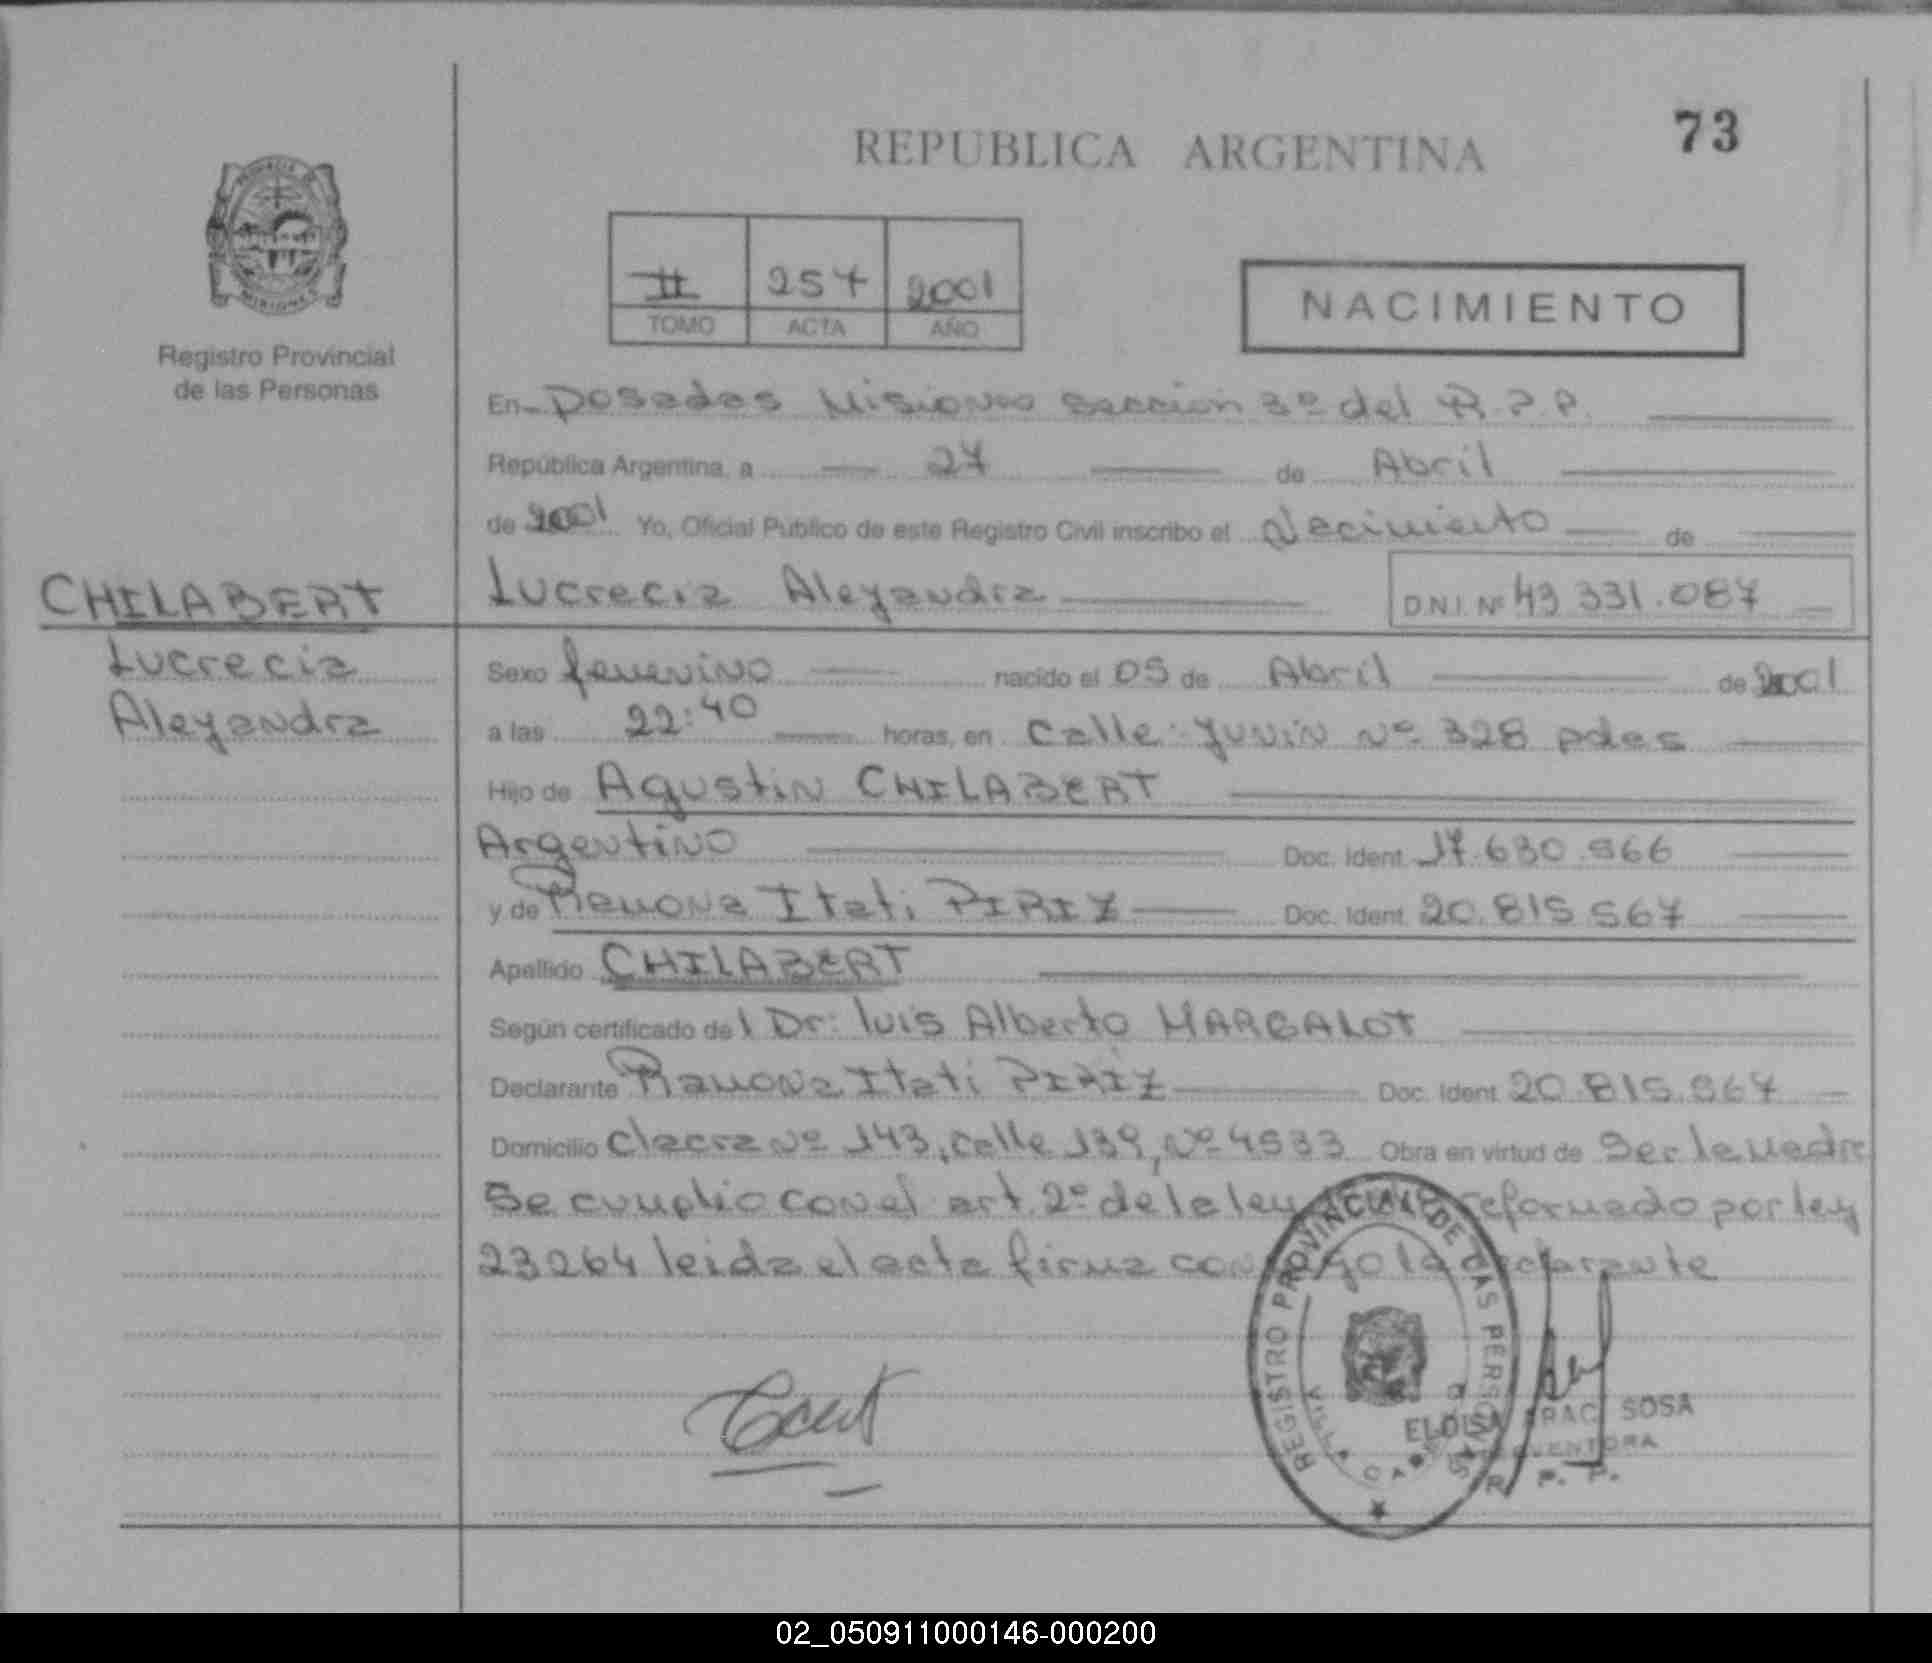 73
REPUBLICA ARGENTINA
PROVINCIA DE
MISIONES
Registro Provincial
de las Personas
II 257 2001
TOMO ACTA AÑO
NACIMIENTO
En Posadas Misiones Sección 3º del R.P.P.
República Argentina, a 27 de Abril
de 2001 Yo, Oficial Publico de este Registro Civil inscribo el Nacimiento de
CHILABERT
Lucrecia Aleyandra D.N.I. Nº 43 331.087
Lucrecia
Aleyandra
Sexo femenino nacido el 05 de Abril de 2001
a las 22:40 horas, en Calle Junin Nº 328 pdas
Hijo de Agustin CHILABERT
Argentino Doc. Ident. 17.630.566
y de Ramona Itati PIRIZ Doc. Ident. 20.815.567
Apellido CHILABERT
Según certificado del Dr: luis Alberto MARGALOT
Declarante Ramona Itati PIRIZ Doc. Ident 20.815.567
Domicilio Chacra Nº 143, calle 139, Nº 4533 Obra en virtud de Ser la madre
Se cumplio con el art. 2º de la ley reformado por ley
23264 leida el acta firma conmigo la declarante
REGISTRO PROVINCIAL DE LAS PERSONAS
ELOISA ARAC SOSA
R. P. P.
02_050911000146-000200